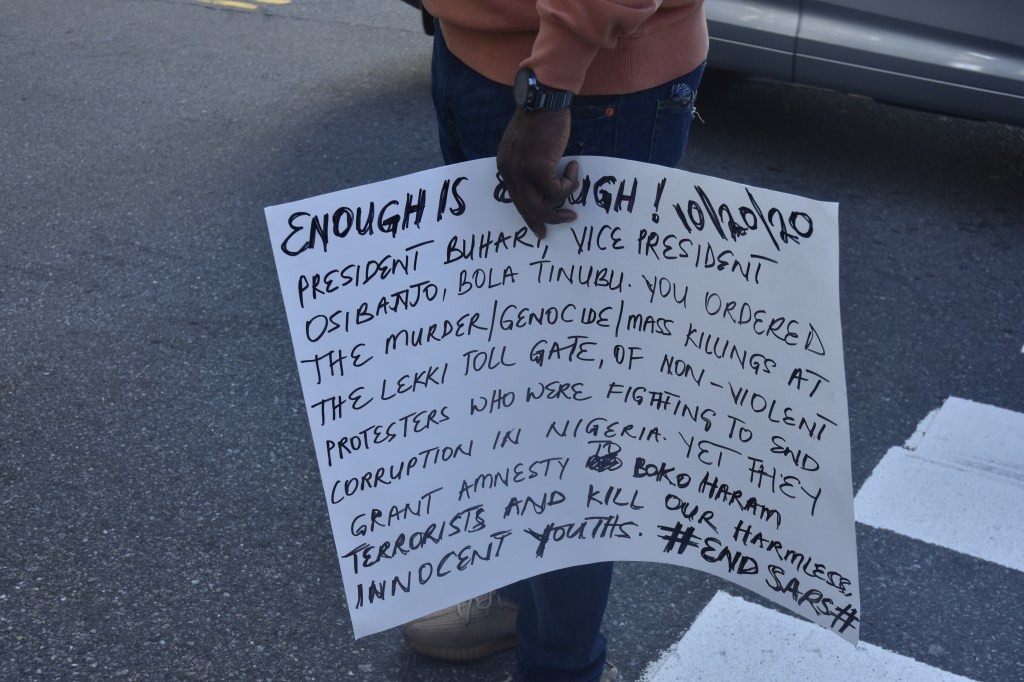 ENOUGH IS UGH! 10/20/20
PRESIDENT BUHARI, VICE PRESIDENT
OSIBANJO, BOLA TINUBU. YOU ORDERED
THE MURDER/GENOCIDE/MASS KILLINGS AT
THE LEKKI TOLL GATE, OF NON-VIOLENT
PROTESTERS WHO WERE FIGHTING TO END
CORRUPTION IN NIGERIA. YET THEY
GRANT AMNESTY TO BOKO HARAM
TERRORISTS AND KILL OUR HARMLESS,
INNOCENT YOUTHS. #END SARS#